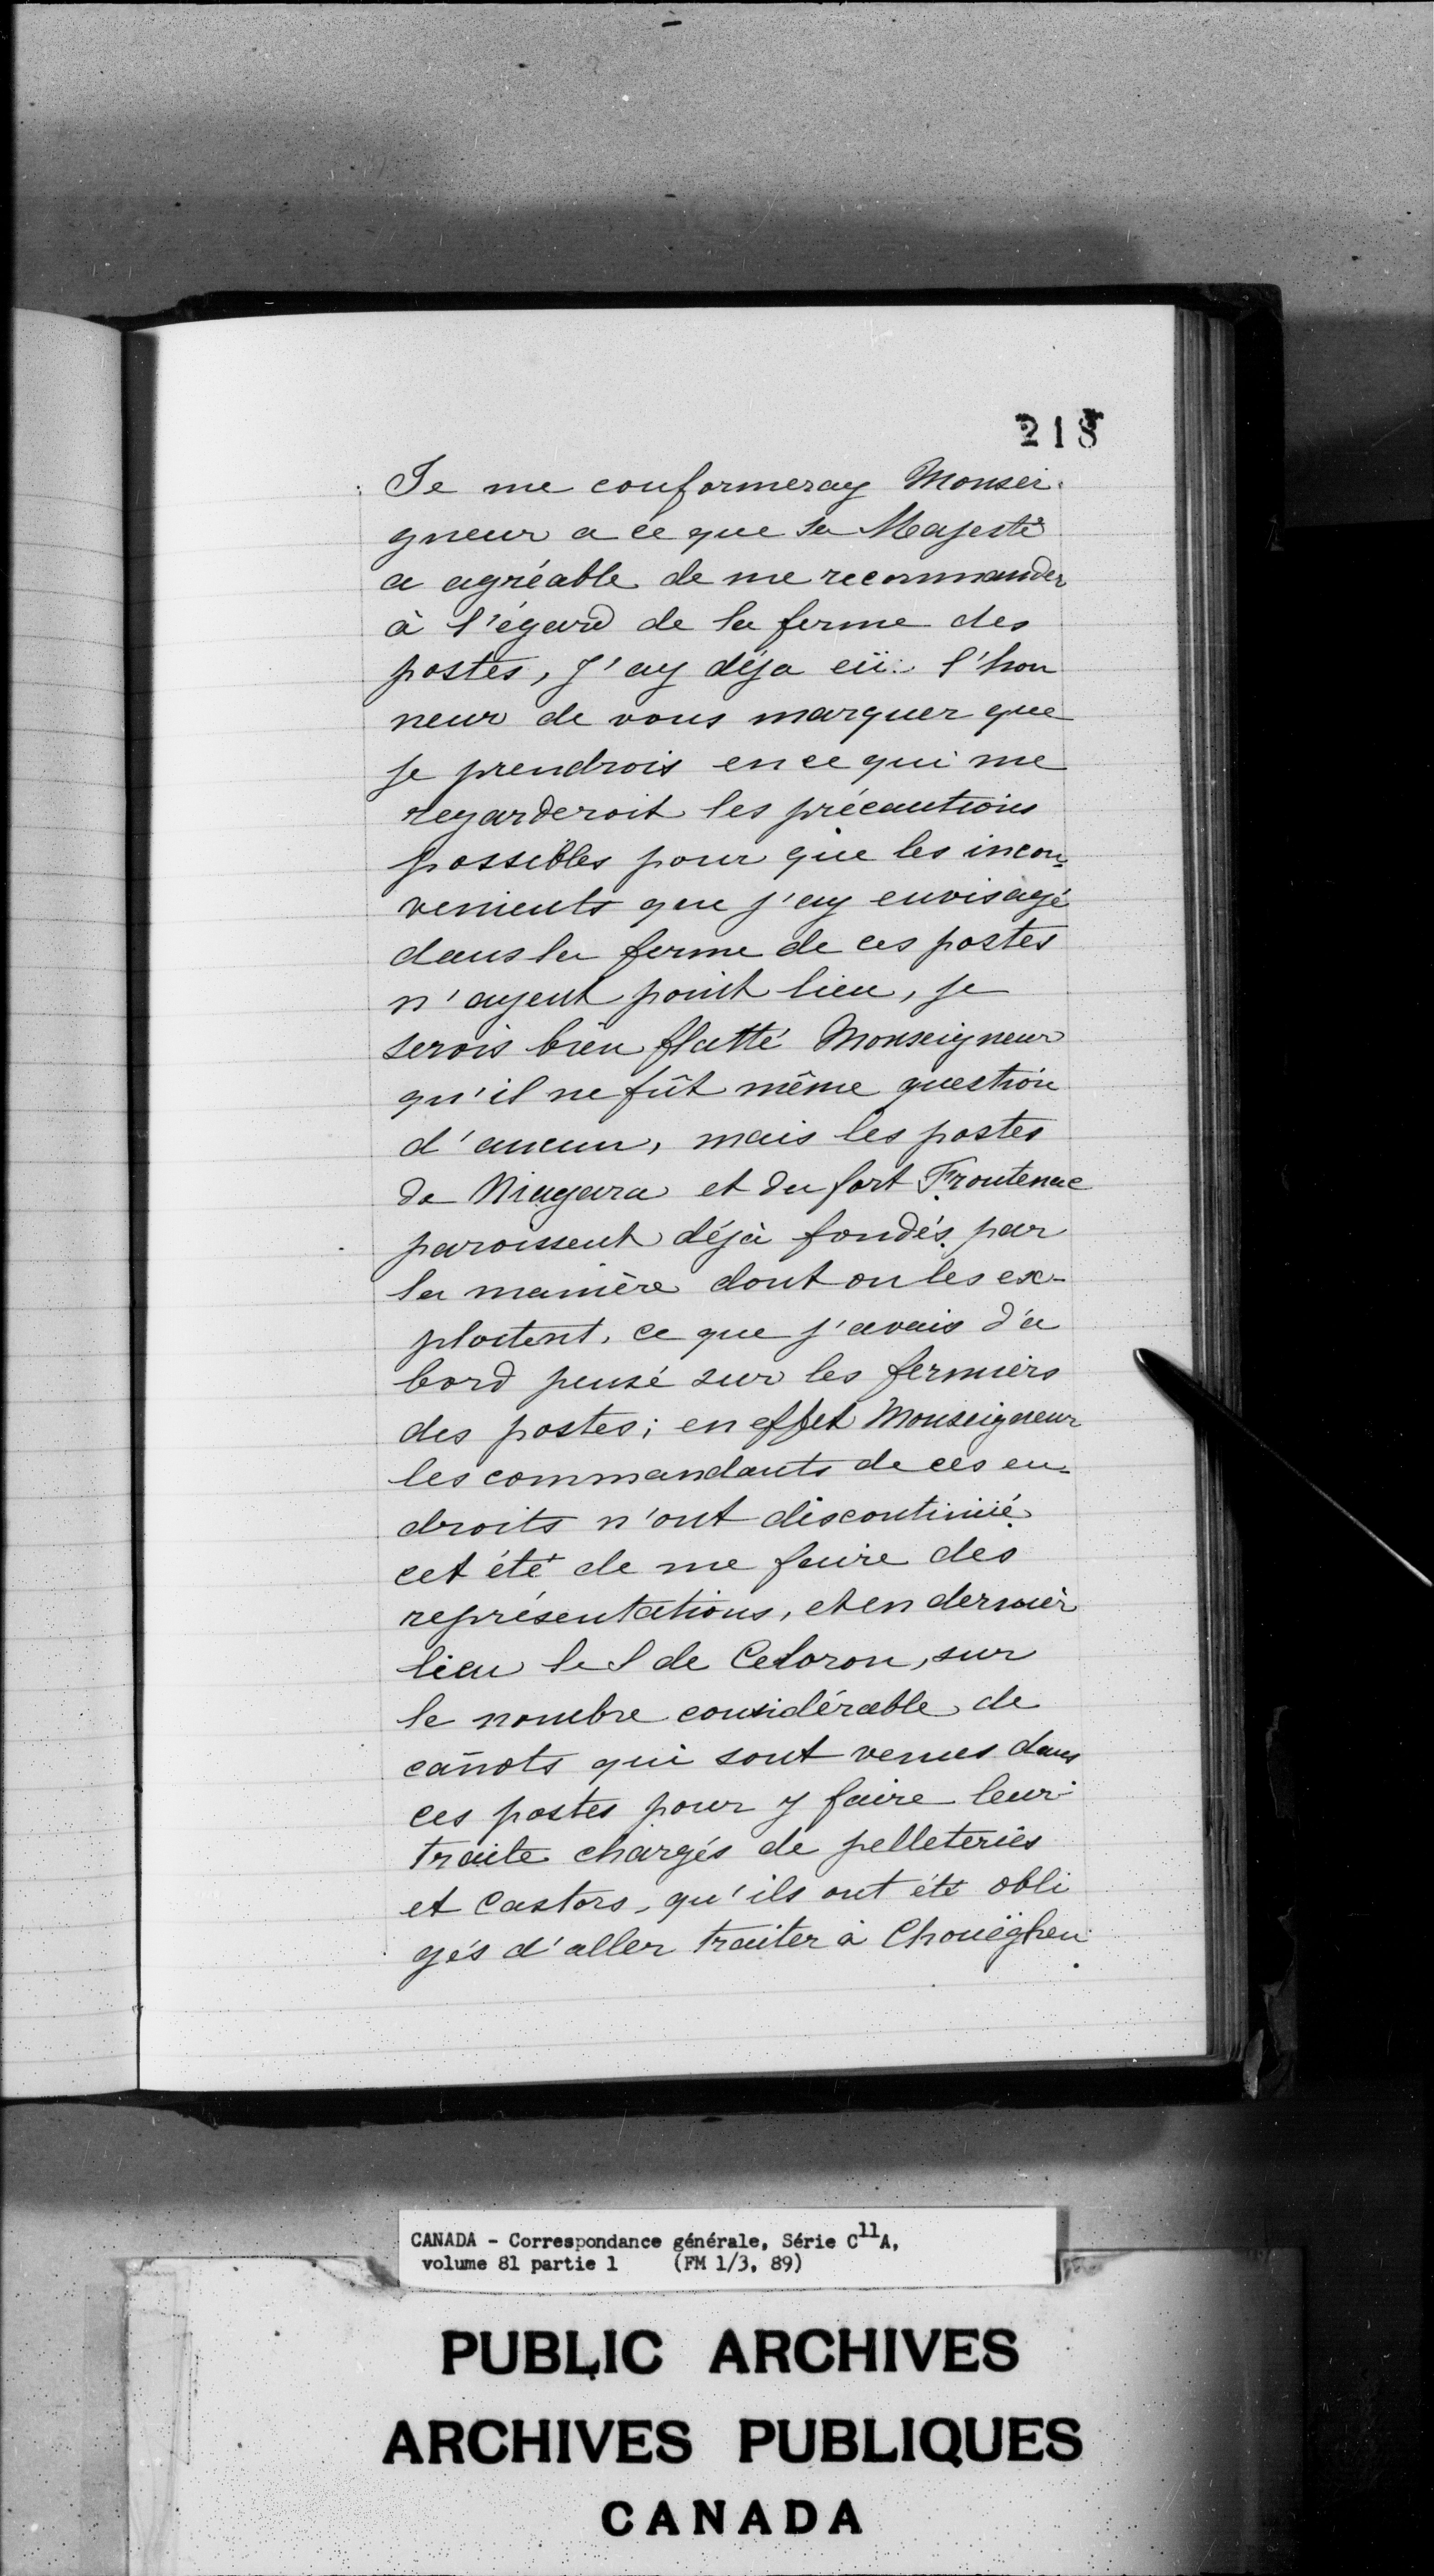 218
Je me conformeray Monsei-
gneur a ce que sa Majesté
a agréable de me recommander
à l'égard de la ferme des
postes, J'ay déja eü l'hon
neur de vous marquer que
je prendrois en ce qui me
regarderoit les précautions
possibles pour que les incon-
venients que j'ay envisagé
dans la ferme de ces postes
n'ayent point lieu, je
serois bien flatté Monseigneur
qu'il ne fût même question
d'aucun, mais les postes
de Niagara et du fort Frontenac
paroissent déjà fondés par
la manière dont on les ex-
ploitent, ce que j'avais d'a
bord pensé sur les fermiers
des postes; en effet Monseigneur
les commandants de ces en-
droits n'ont discontinüé
cet été de me faire des
représentations, et en dernier
lieu le S de Celoron, sur
le nombre considérable de
canots qui sont venus dans
ces postes pour y faire leur
traite chargés de pelleteries
et Castors, qu'ils ont été obli
gés d'aller traiter à Chouëghen
CANADA - Correspondance générale, Série C11A,
volume 81 partie 1 (FM 1/3, 89)
PUBLIC ARCHIVES
ARCHIVES PUBLIQUES
CANADA